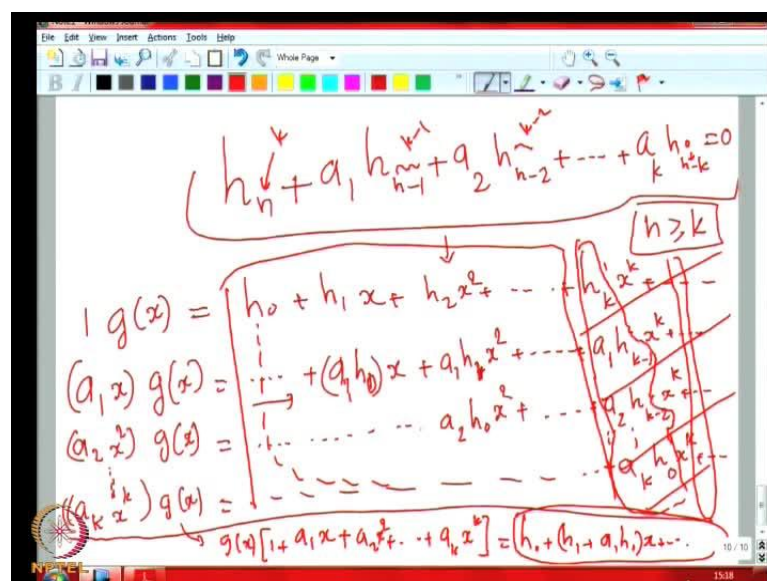 File Edit View Insert Actions Tools Help
Whole Page
B I
k k-1 k-2
h_n + a_1 h_{n-1} + a_2 h_{n-2} + ... + a_k h_{n-k} = 0
n ≥ k
1 g(x) = h_0 + h_1 x + h_2 x^2 + ... + h_k x^k + ...
(a_1 x) g(x) = ... + (a_1 h_0) x + a_1 h_1 x^2 + ... a_1 h_{k-1} x^k + ...
(a_2 x^2) g(x) = ... a_2 h_0 x^2 + ... a_2 h_{k-2} x^k + ...
(a_k x^k) g(x) = ... a_k h_0 x^k + ...
g(x) [1 + a_1 x + a_2 x^2 + ... + a_k x^k] = h_0 + (h_1 + a_1 h_0) x + ...
NPTEL
10 / 10
15:18